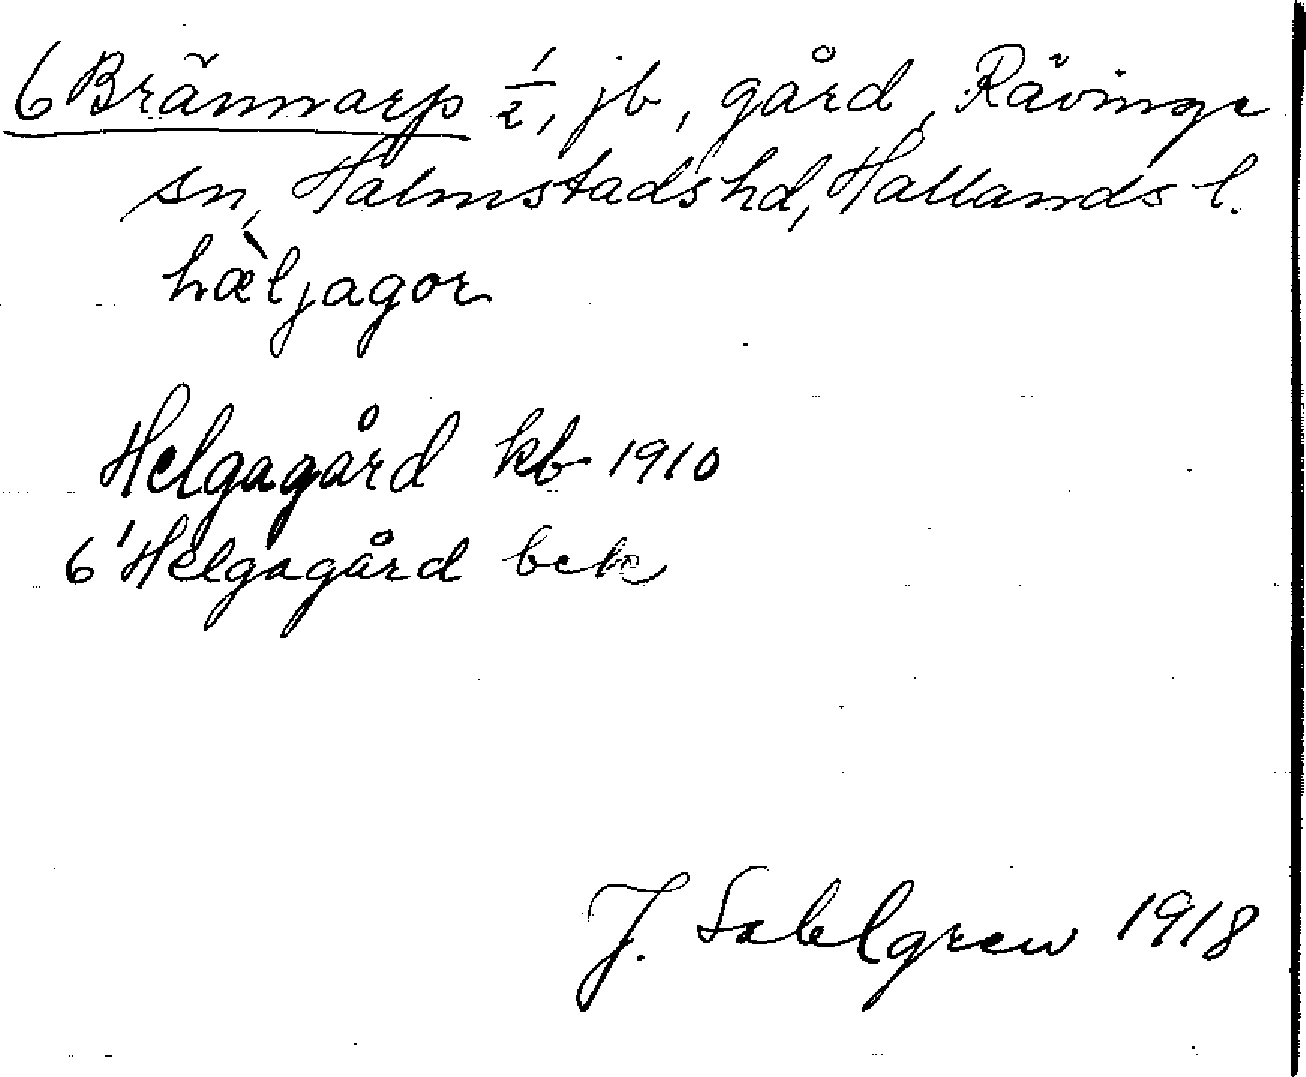 6 Brännarp 1/2, jb, gård, Rävinge
sn, Halmstads hd, Hallands l.
hæ̀ljagor
Helgagård kb 1910
6 Helgagård bek
J. Sahlgren 1918